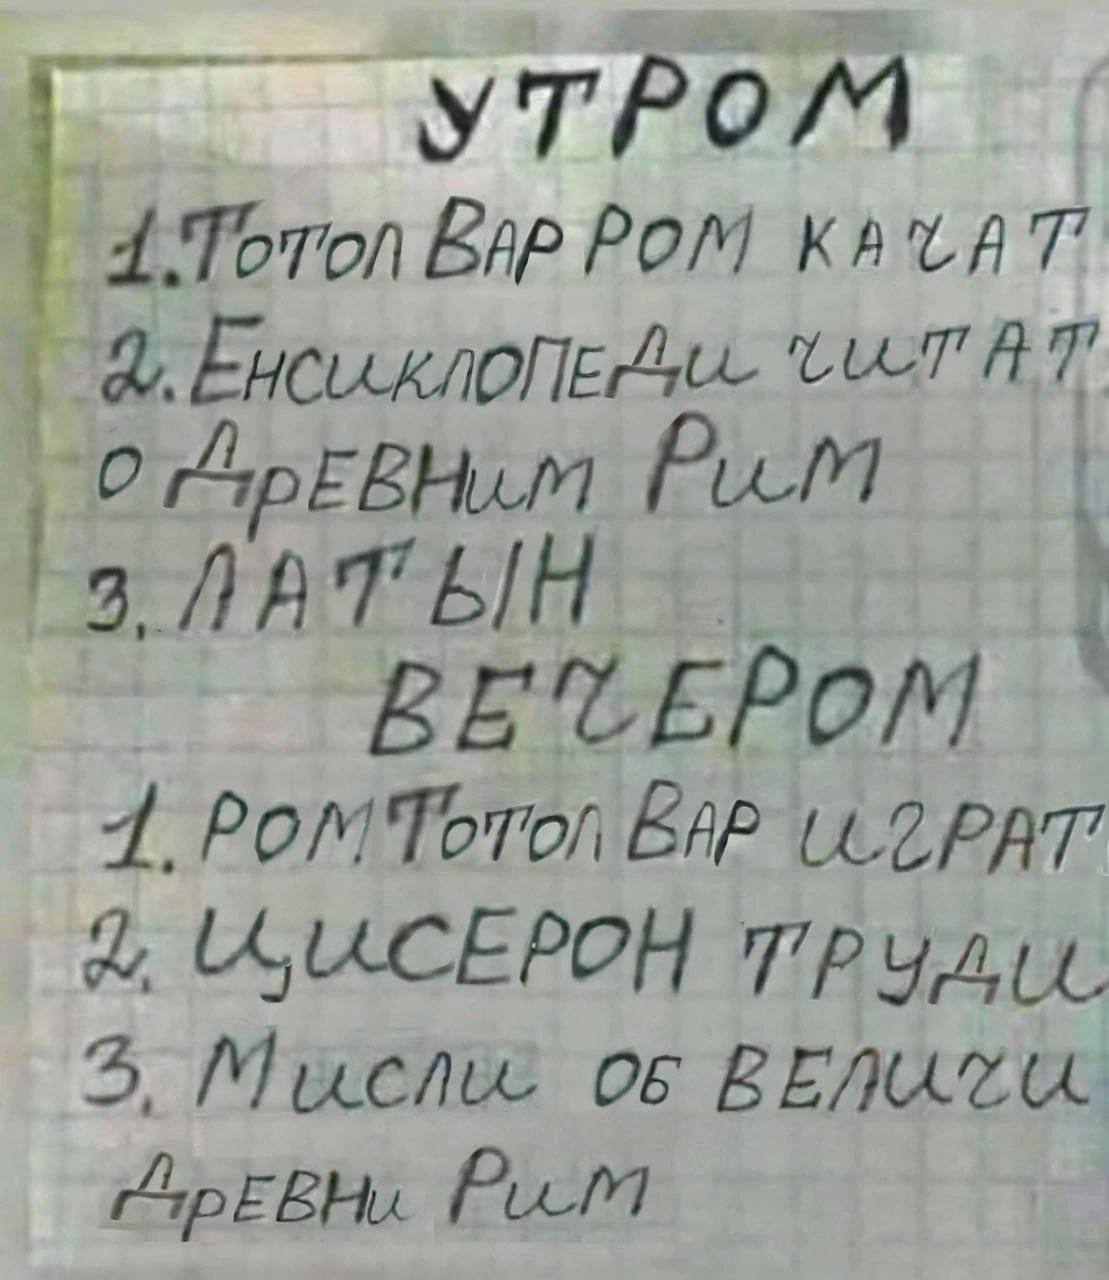 УТРОМ
1. ТОТОЛ ВАР РОМ КАЧАТ
2. ЕНСИКЛОПЕДИ ЧИТАТ
О ДРЕВНИМ РИМ
3. ЛАТЫН
ВЕЧЕРОМ
1. РОМ ТОТОЛ ВАР ИГРАТ
2. ЦИСЕРОН ТРУДИ
3. МИСЛИ ОБ ВЕЛИЧИ
ДРЕВНИ РИМ